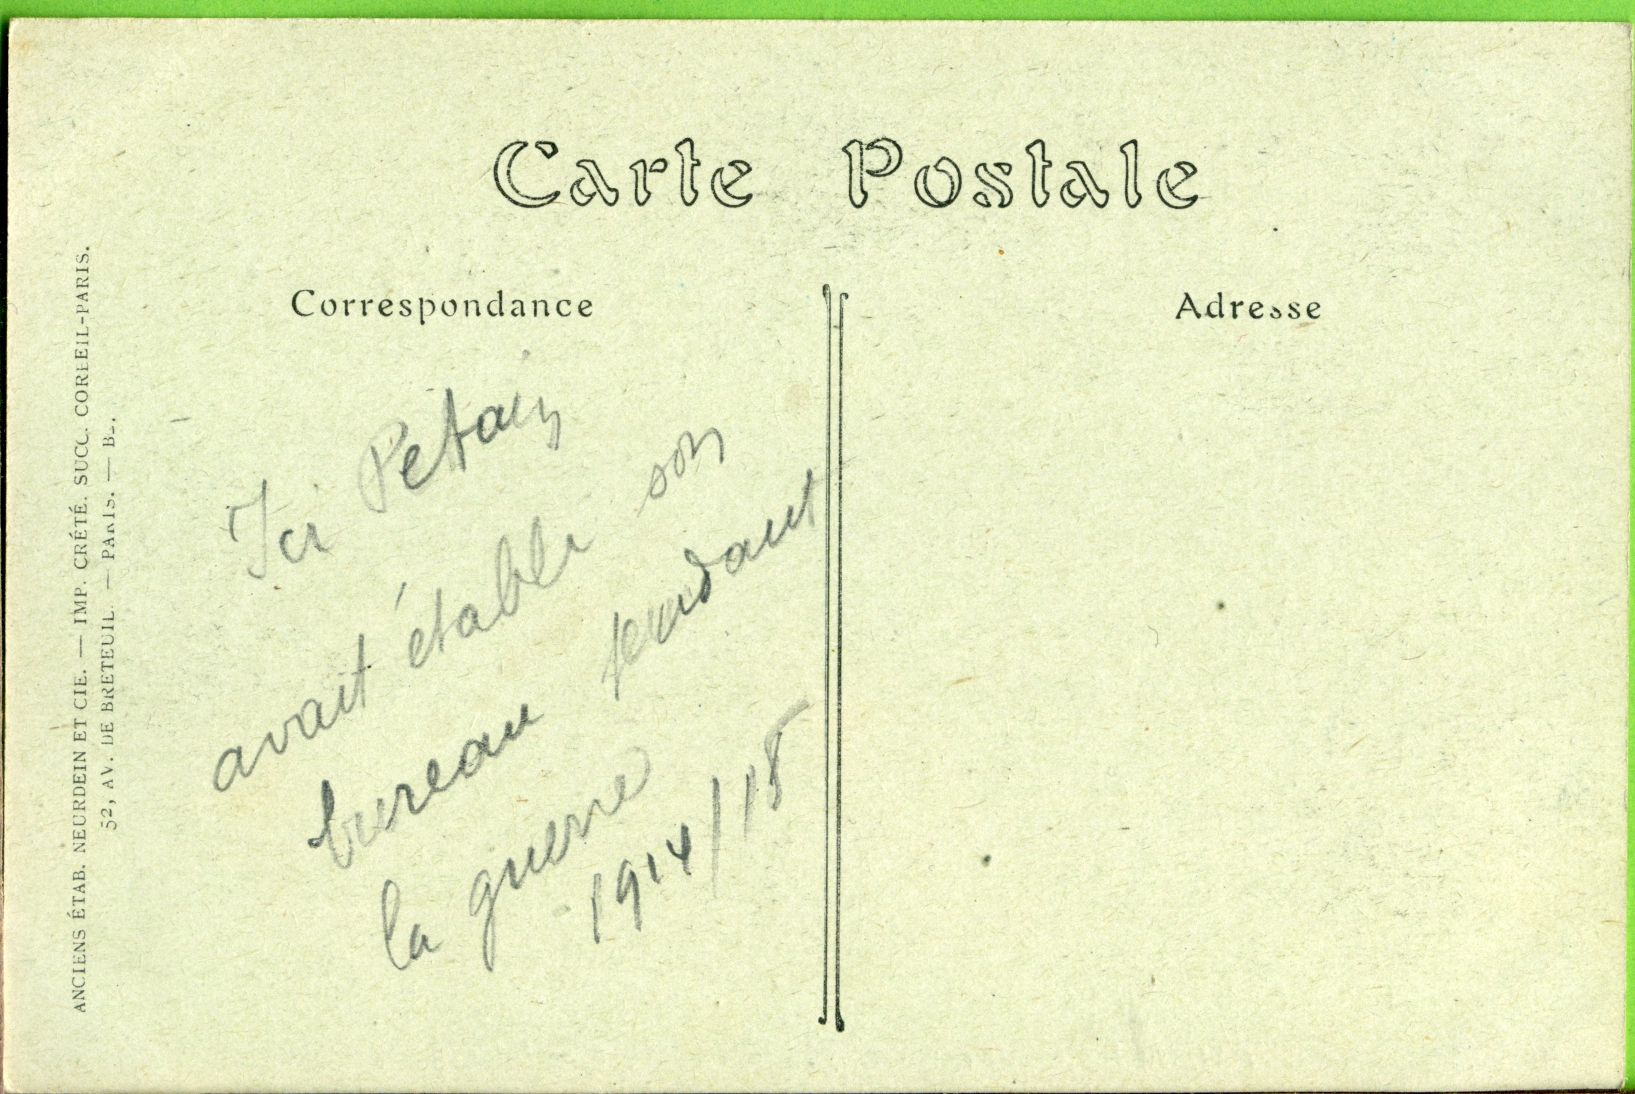 Carte Postale
Correspondance
Adresse
Ici Petain
avait établi son
bureau pendant
la guerre
1914/18
ANCIENS ÉTAB. NEURDEIN ET CIE. — IMP. CRÉTÉ. SUCC. CORBEIL-PARIS.
52, AV. DE BRETEUIL. — PARIS. —